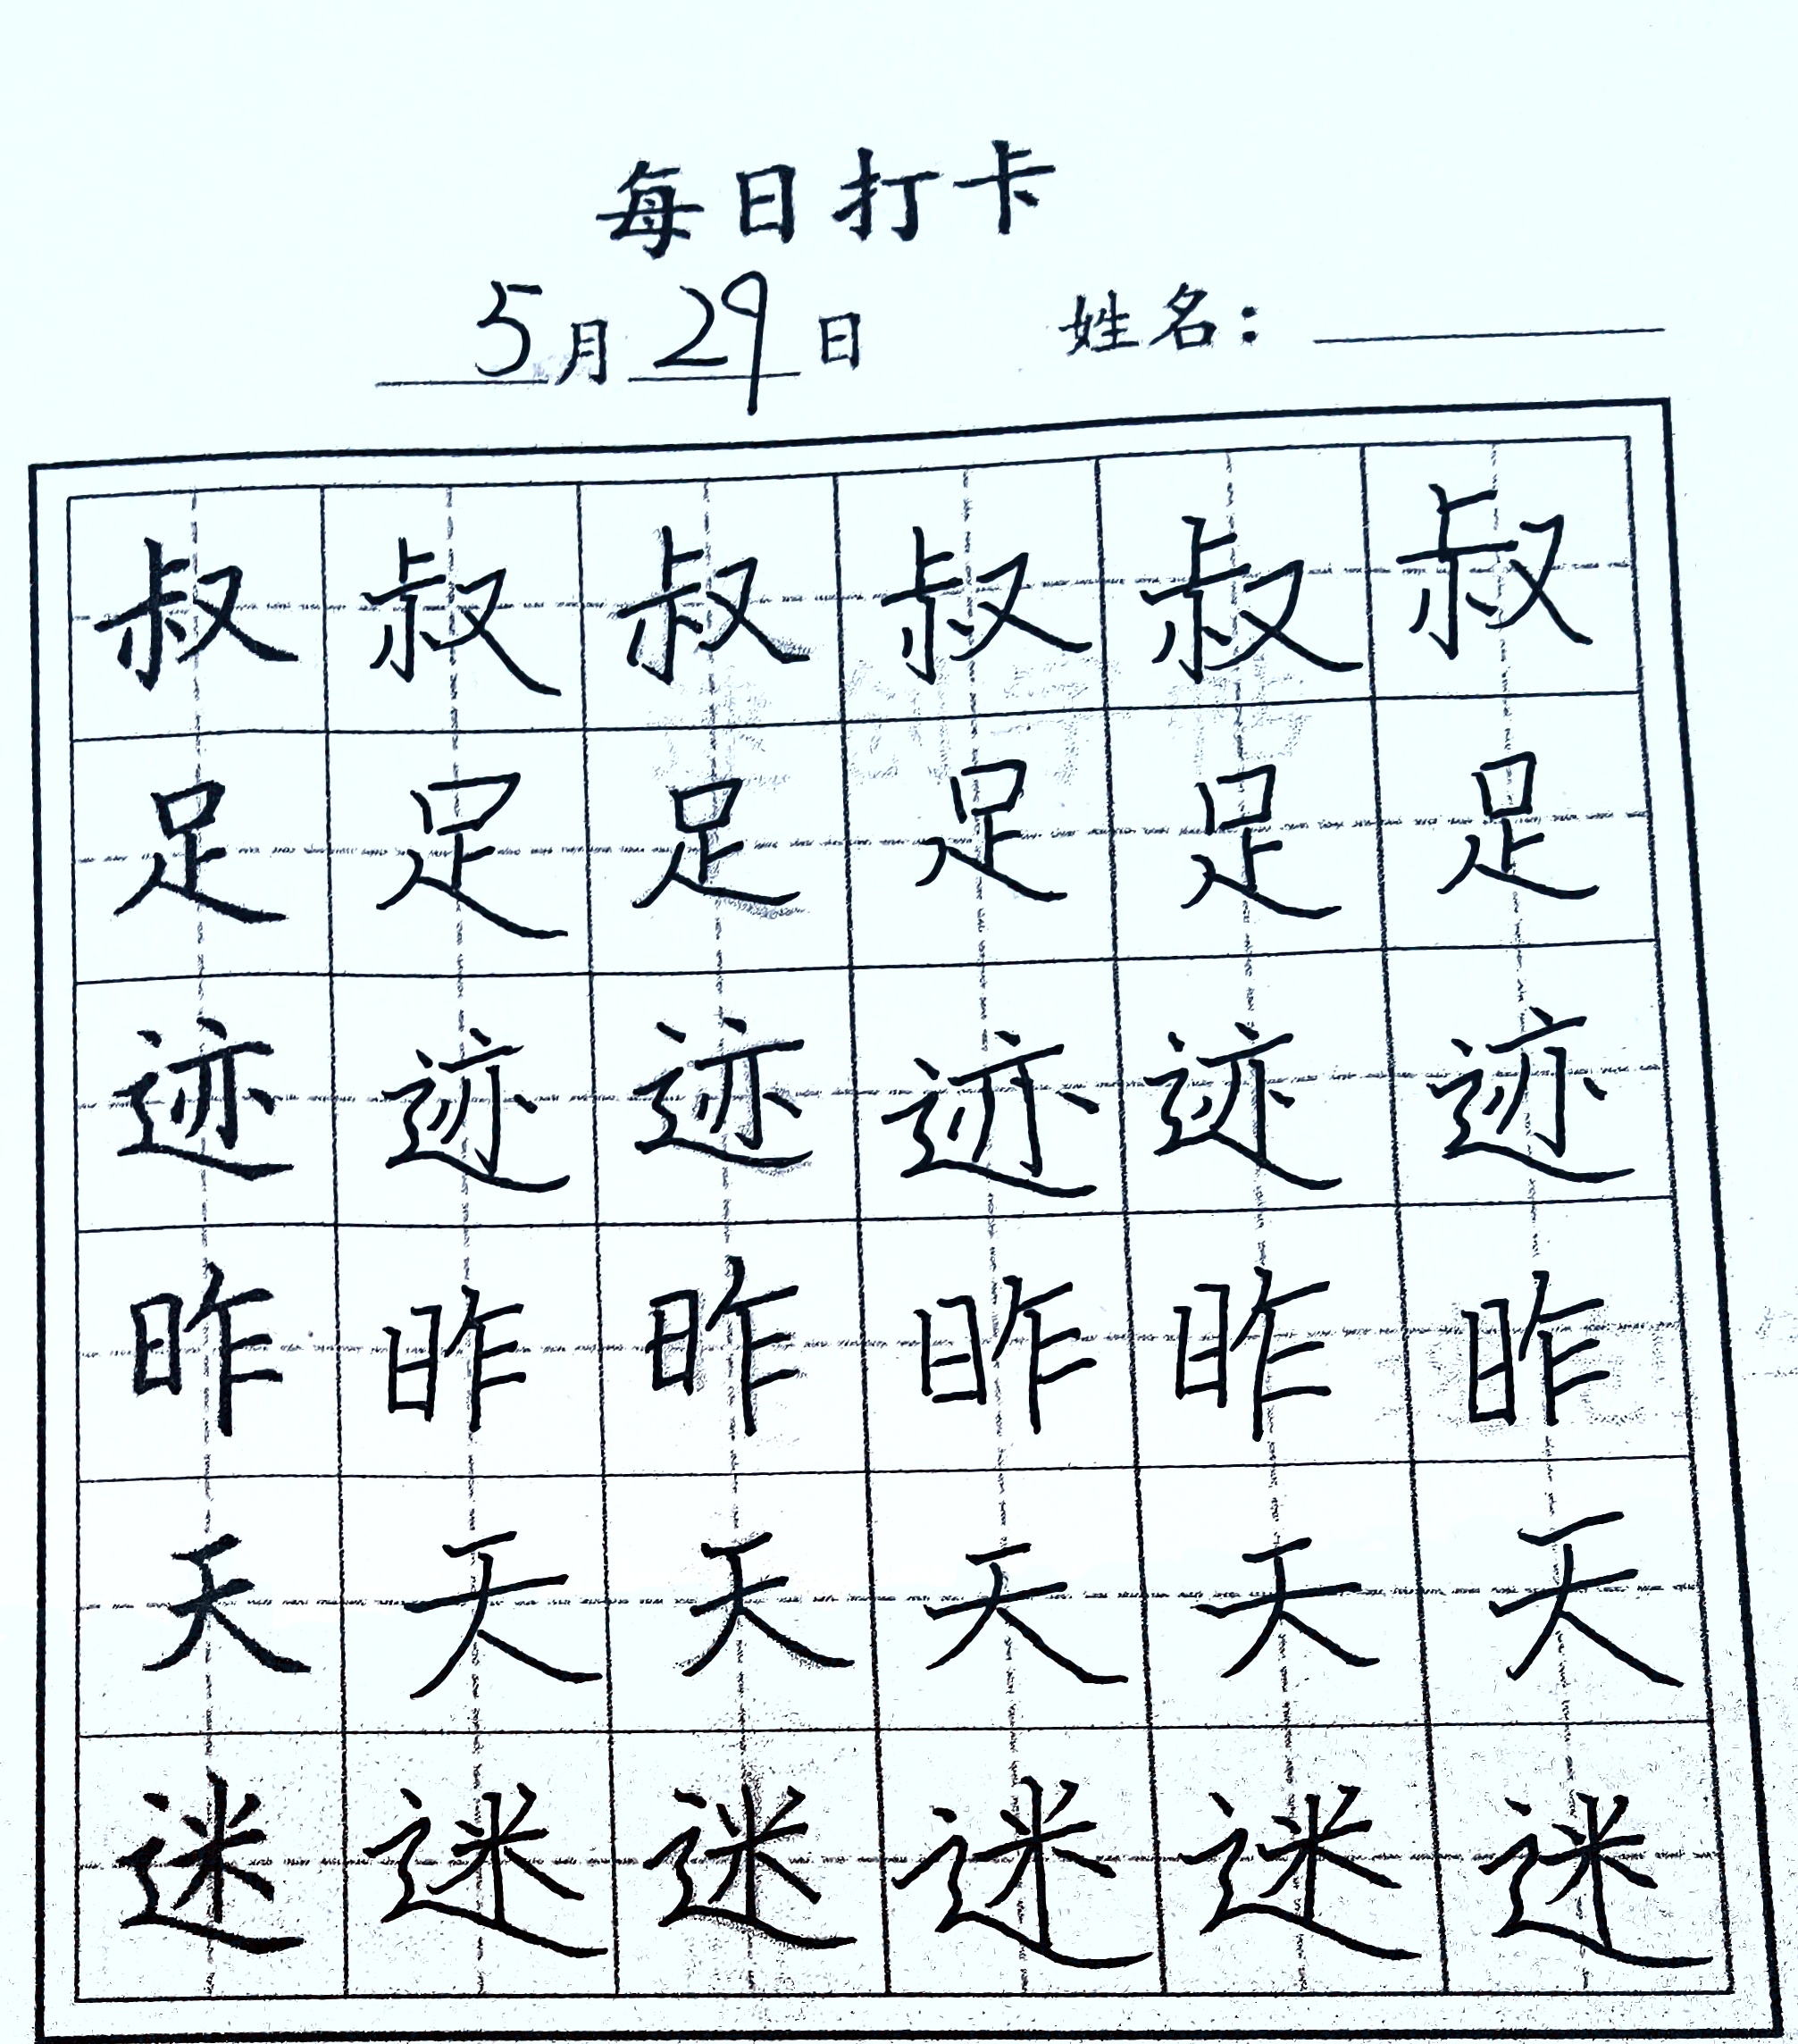 每日打卡
5月29日 姓名：
叔叔叔叔叔叔
足足足足足足
迹迹迹迹迹迹
昨昨昨昨昨昨
天天天天天天
迷迷迷迷迷迷